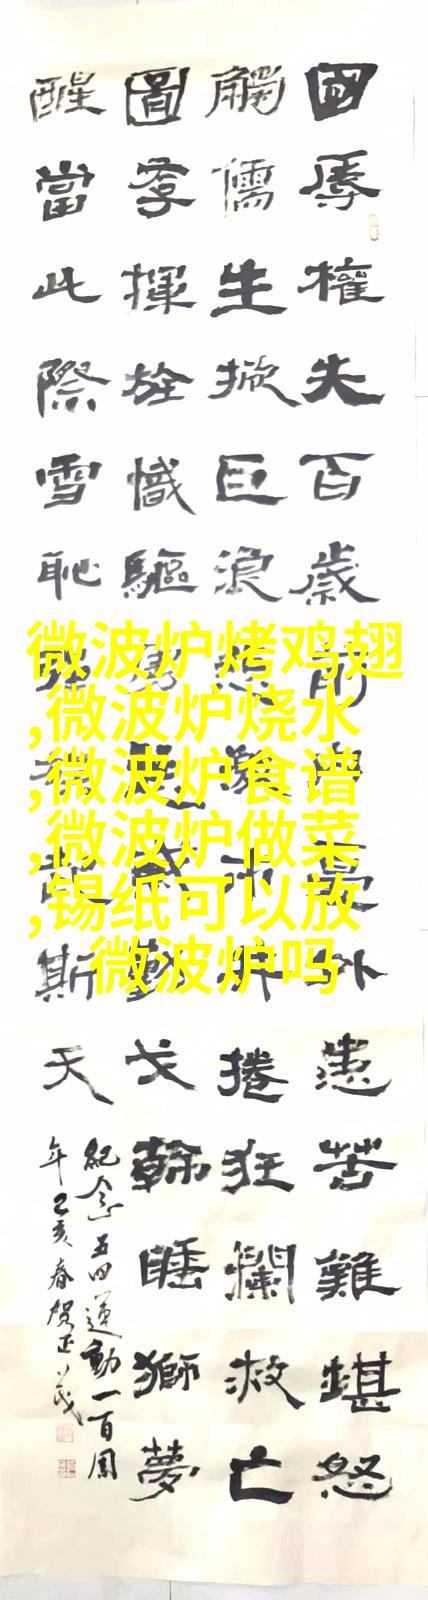 國辱權失百歲前憂外患苦難堪怒
觸儒生掀巨浪捲狂瀾救亡
圖存揮旌幟驅動戈翰睡獅夢
醒當此際雪恥斯天
紀念五四運動一百周
年己亥春賀正茂
微波炉烤鸡翅
,微波炉烧水
,微波炉食谱
,微波炉做菜
,锡纸可以放
微波炉吗